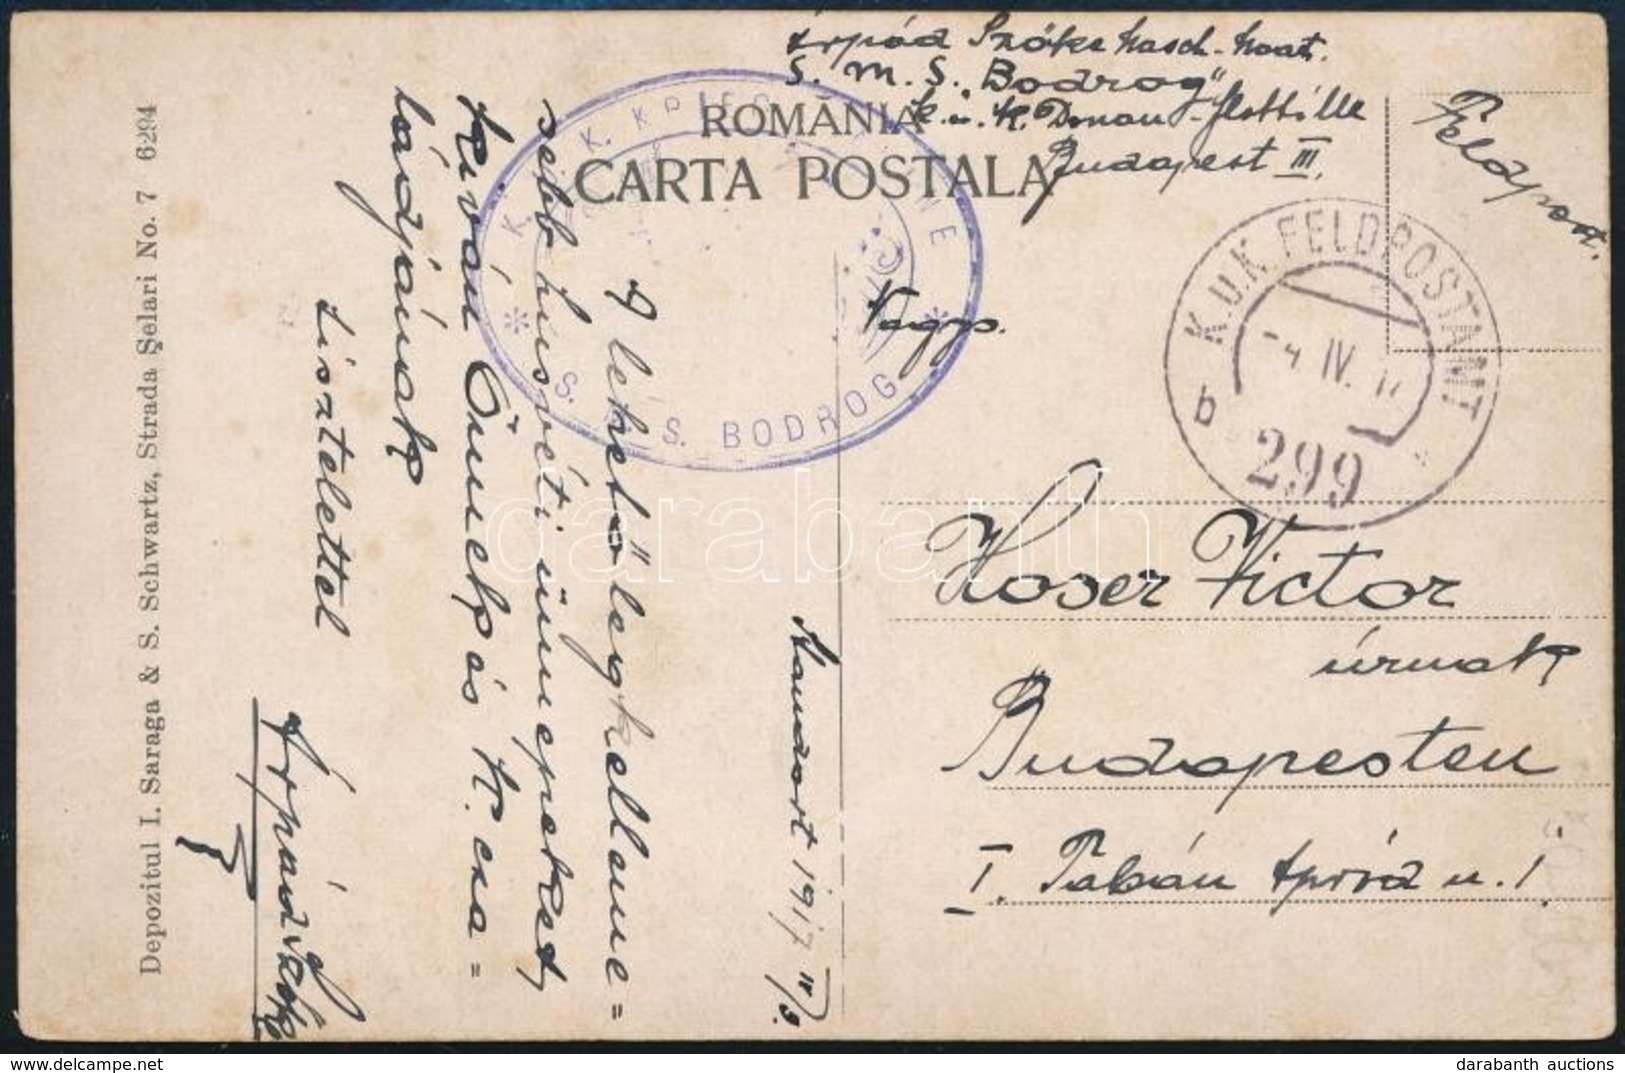 Árpád Szőke Masch. Maat.
S. M. S. „Bodrog"
K. u. K. Donau-flottille
Budapest III.
Feldpost.
ROMÂNIA
CARTA POSTALA
K. K. KRIEGSMARINE
S. M. S. BODROG
K.U.K. FELDPOSTAMT
-4 IV. 17
b
299
Nagys.
Hoser Victor
úrnak
Budapesten
I. Tabán Apród u. 1
Hamdort 1917 IV/3.
A lehető legkelleme=
sebb húsvéti ünnepeket
kíván Önnek és K. csa=
ládjának
tisztelettel
Árpád Szőke
Depozitul I. Saraga & S. Schwartz, Strada Şelari No. 7 6294
darabanth
darabanth auctions